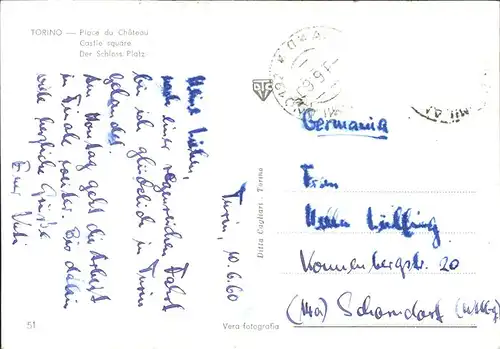 TORINO — Place du Château
Castle square
Der Schloss Platz
Turin, 10.6.60
Meine Lieben,
nach einer regenreichen Fahrt
bin ich glücklich in Turin
gelandet.
Am Montag geht die Arbeit
in weiter. Bis dahin
viele herzliche Grüsse
Germania
Frau
20
(14a) Schorndorf
Ditta Cagliari - Torino
51
Vera fotografia